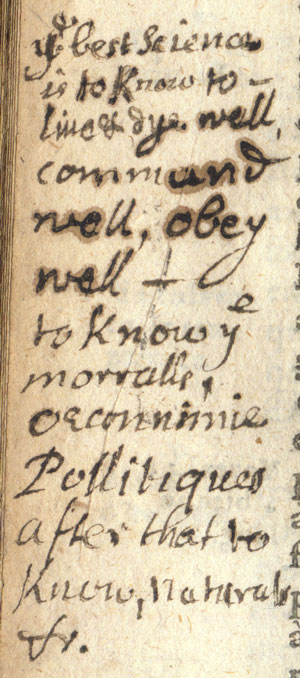 yͤ best Science
is to Know to –
live & dye well,
command
well, obey
well –
to Know yͤ
morralls,
Oeconnimie
Pollitiques
after that to
Know, naturals
&c.